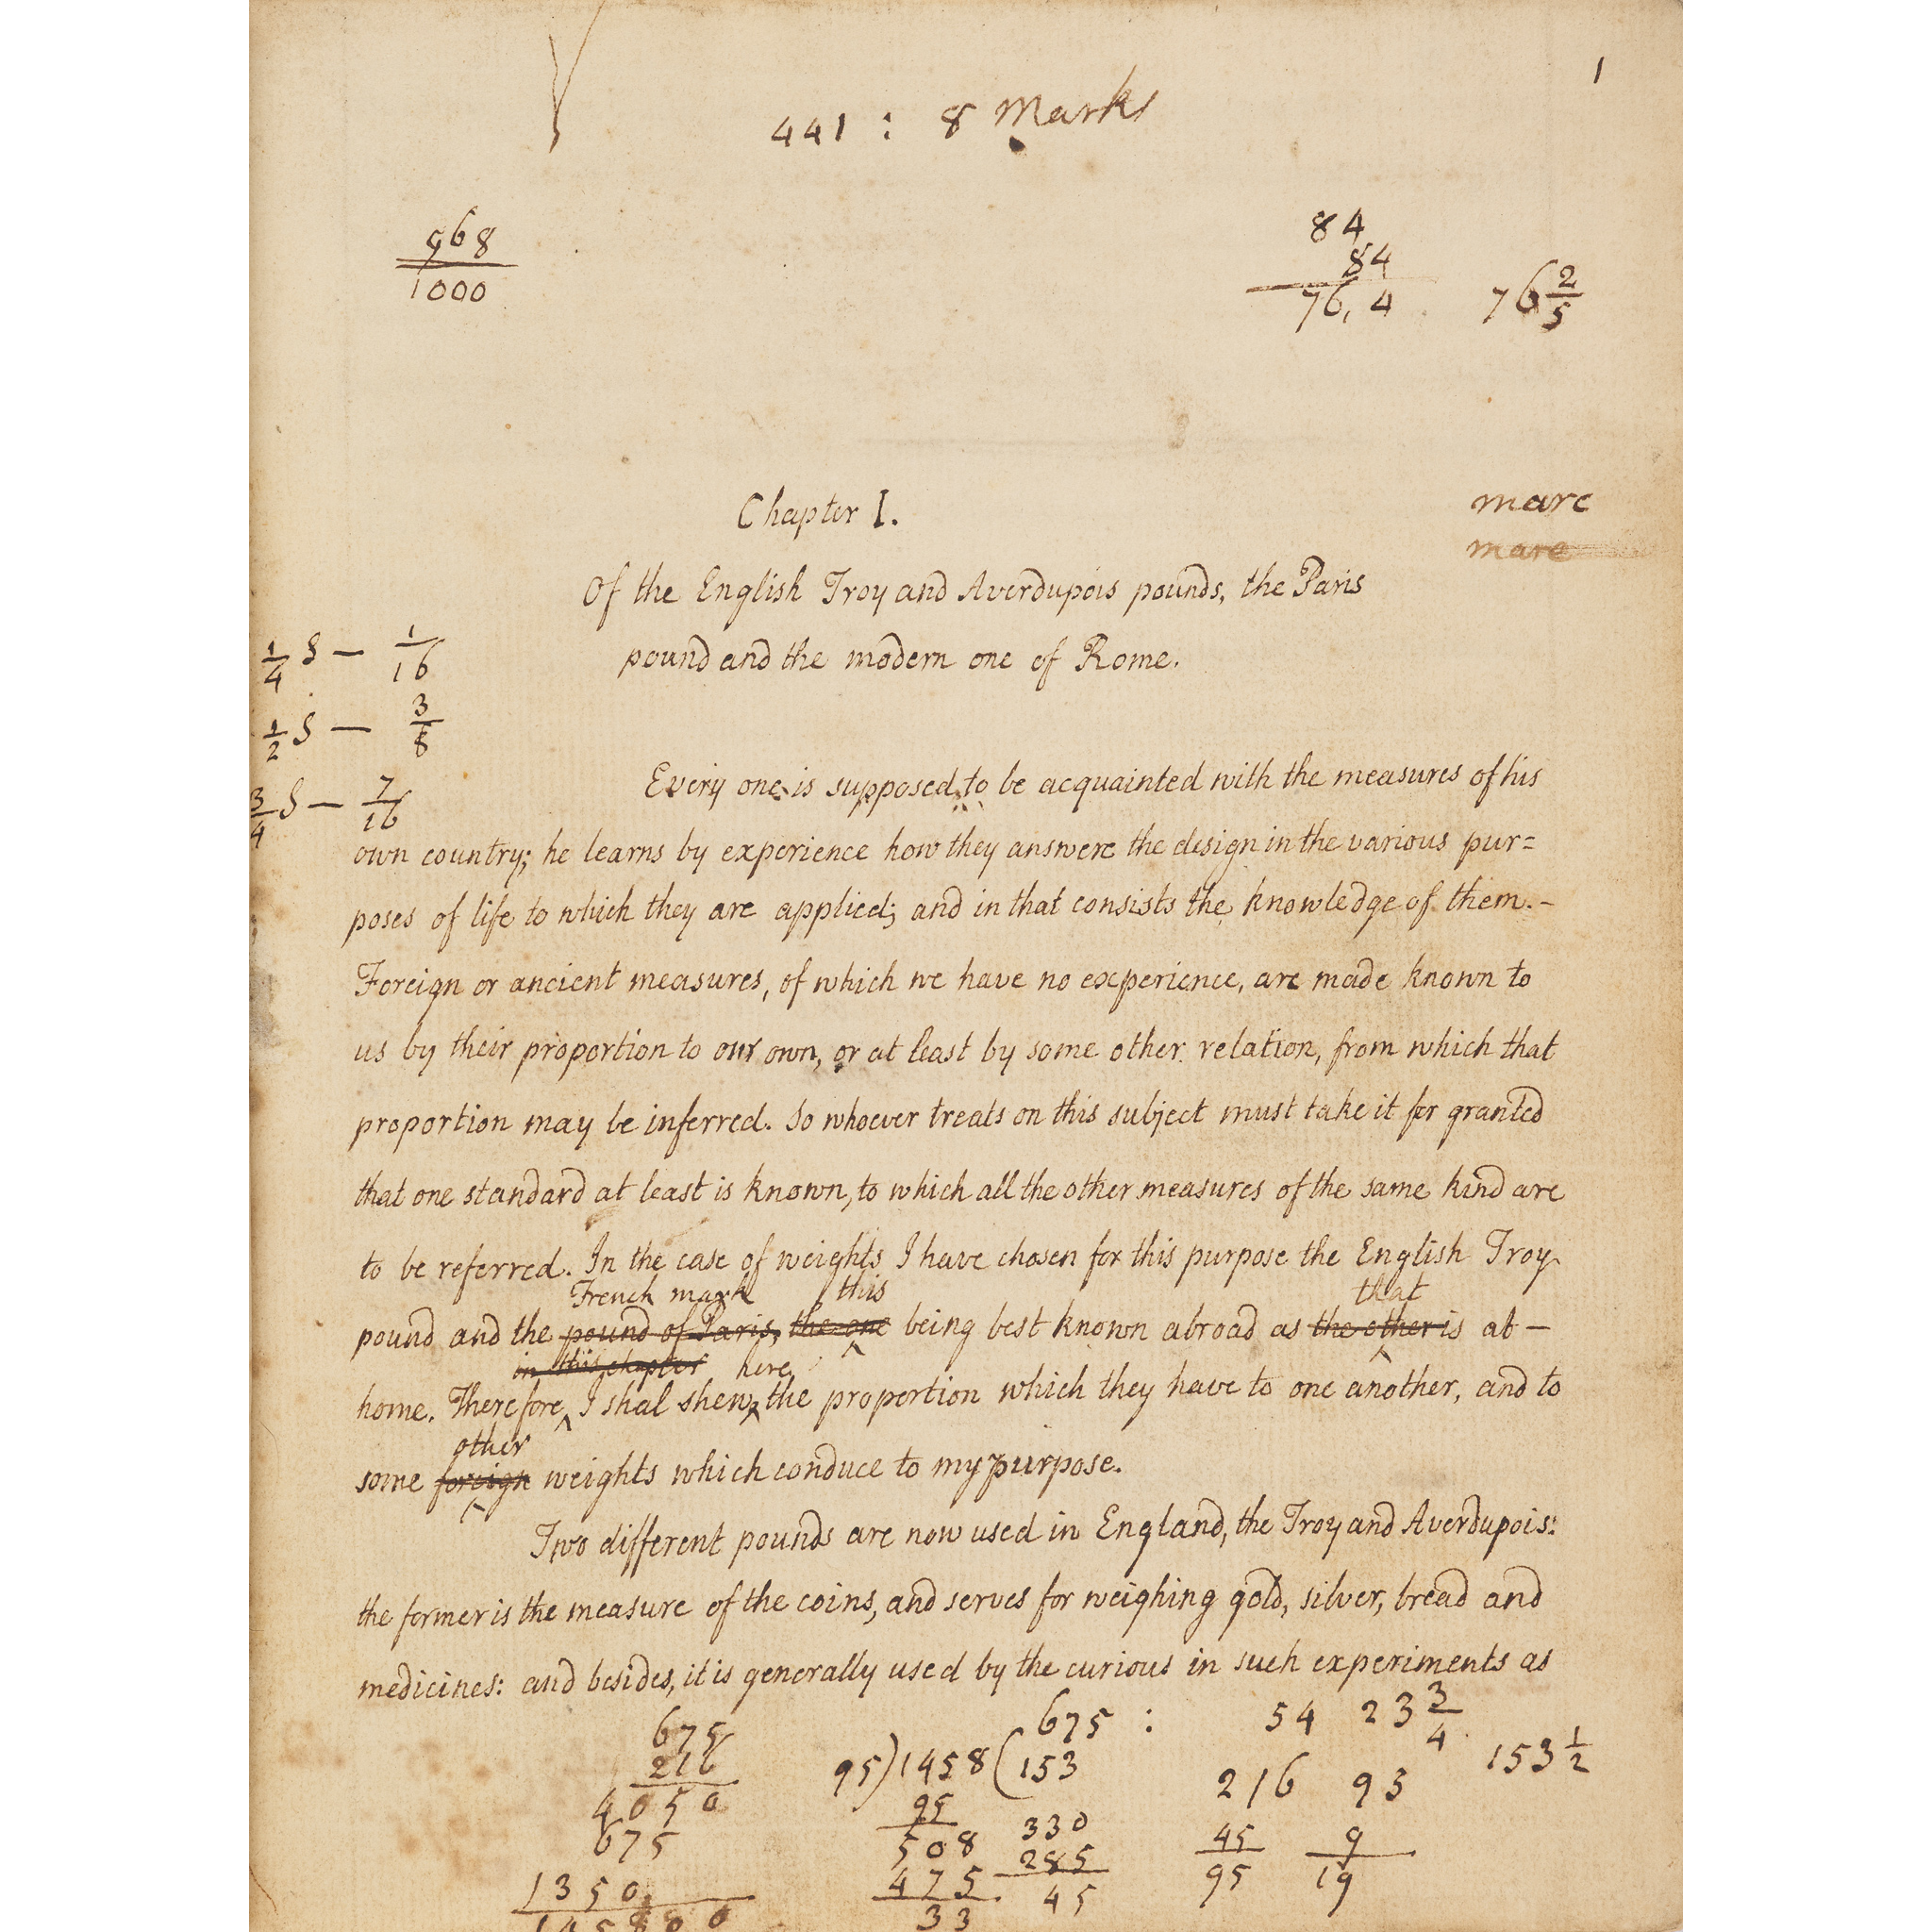 1
441 : 8 Marks
968
1000
84
84
76,4
76 2/5
Chapter I.
marc
marc
Of the English Troy and Averdupois pounds, the Paris
pound and the modern one of Rome.
1/4 — 1/16
1/2 — 3/8
3/4 — 7/16
Every one is supposed to be acquainted with the measures of his
own country; he learns by experience how they answere the design in the various pur=
poses of life to which they are applied; and in that consists the knowledge of them.-
Foreign or ancient measures, of which we have no experience, are made known to
us by their proportion to our own, or at least by some other relation, from which that
proportion may be inferred. So whoever treats on this subject must take it for granted
that one standard at least is known, to which all the other measures of the same kind are
to be referred. In the case of weights I have chosen for this purpose the English Troy
French mark this that
pound and the pound of Paris, the one being best known abroad as the other is at —
in this chapter here
home. Therefore I shal shew the proportion which they have to one another, and to
other
some foreign weights which conduce to my purpose.
Two different pounds are now used in England, the Troy and Averdupois:
the former is the measure of the coins, and serves for weighing gold, silver, bread and
medicines: and besides, it is generally used by the curious in such experiments as
675
216
4050
675
1350
145800
675 : 54 23 3/4
95)1458(153
95
508
475
33
330
285
45
216 93
153 1/2
45
95
9
19